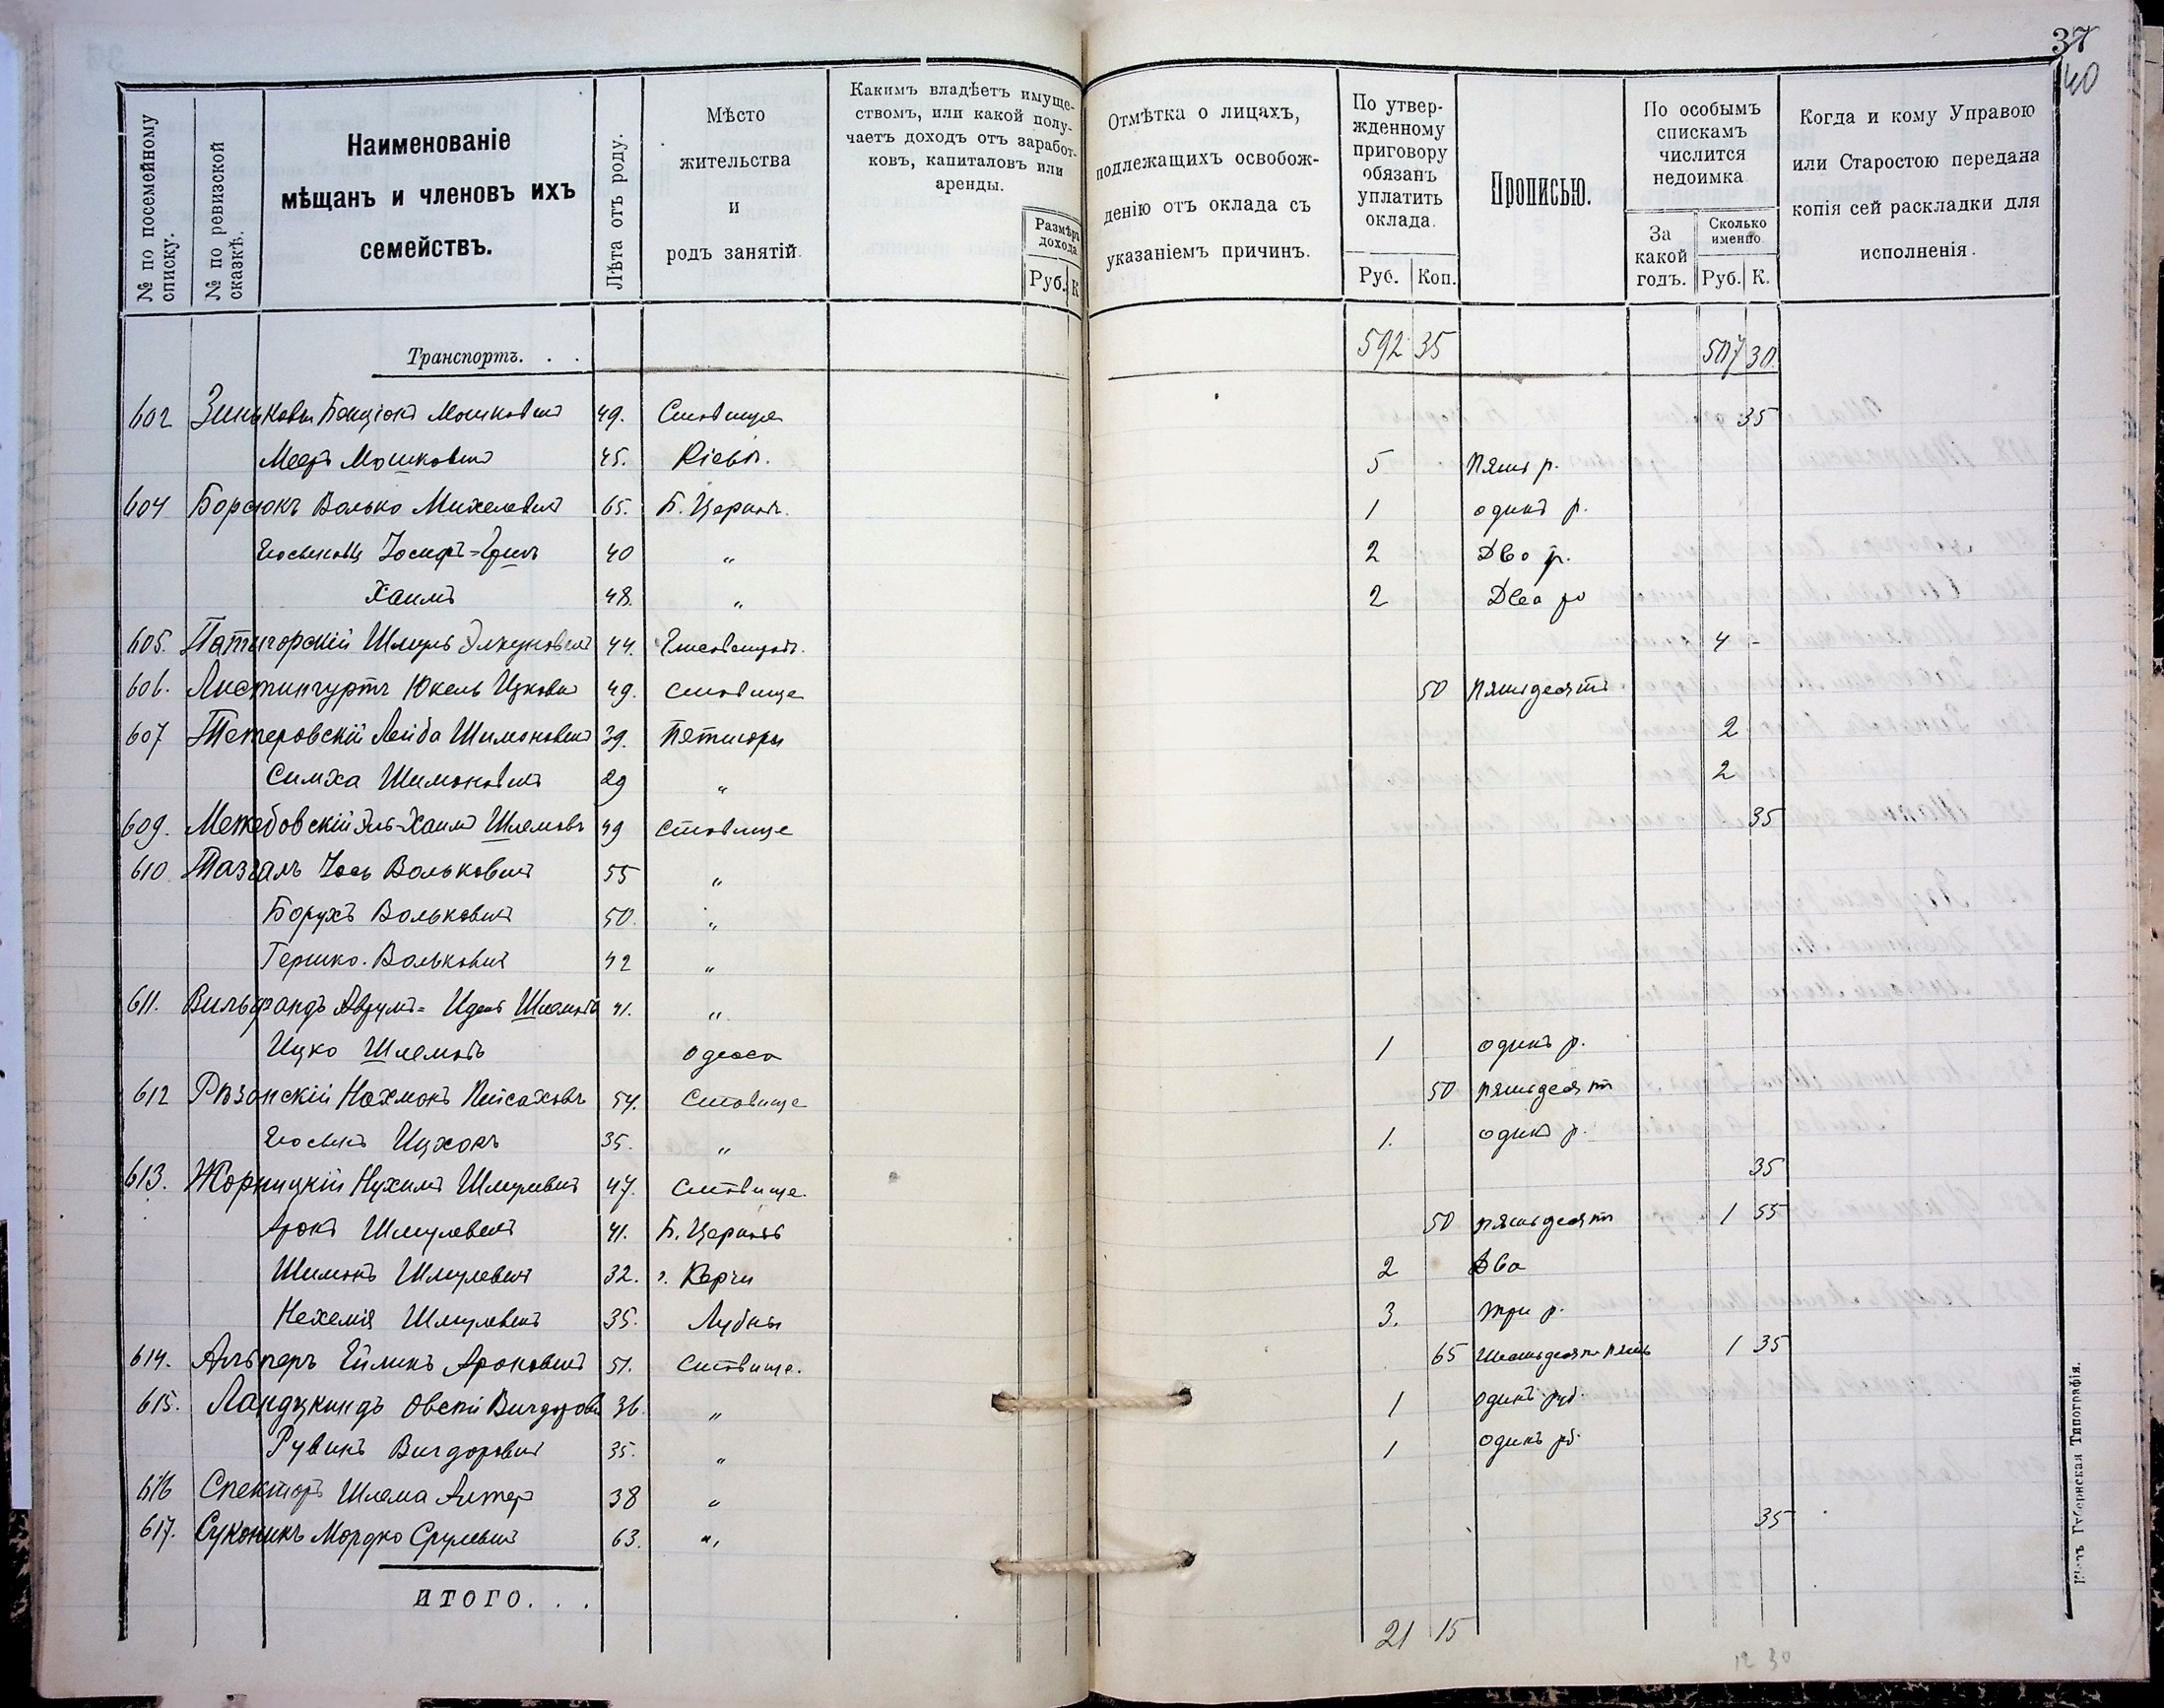 37
40
№ по посемейному списку.
№ по ревизской сказкѣ.
Наименованіе
мѣщанъ и членовъ ихъ
семействъ.
Лѣта отъ роду.
Мѣсто
жительства
и
родъ занятій.
Какимъ владѣетъ имуще-
ствомъ, или какой полу-
чаетъ доходъ отъ заработ-
ковъ, капиталовъ или
аренды.
Размѣръ
дохода
Руб. К
Отмѣтка о лицахъ,
подлежащихъ освобож-
денію отъ оклада съ
указаніемъ причинъ.
По утвер-
жденному
приговору
обязанъ
уплатить
оклада.
Руб. Коп.
Прописью.
По особымъ
спискамъ
числится
недоимка
За
какой
годъ.
Сколько
именно.
Руб. К.
Когда и кому Управою
или Старостою передана
копія сей раскладки для
исполненія.
Транспортъ. . . 592 35 507 30
602 Бенціонъ Мошковичъ 49. Ставище 35
Мееръ Мошковичъ 45. Кіевъ. 5 Пять р.
604 Борсюкъ Волько Михелевичъ 65. Б. Церковь. 1 одинъ р.
Іосифъ= 40 " 2 Два р.
Хаимъ 48. " 2 Два р
605. Патигорскій Шмуль 44. 4 -
606. Листингуртъ Юкель Ицковъ 49. Ставище 50 пятьдесятъ
607 Тетеровскій Лейба Шимоновичъ 39. Пятигоры 2
Симха Шимоновичъ 29 " 2
609. Межебовскій Эль-Хаимъ Шлемовъ 49 Ставище 35
610 Тазгалъ Іось Вольковичъ 55 "
Борухъ Вольковичъ 50. "
Гершко Вольковичъ 42 "
611. Вильфандъ Аврумъ= Идель Шлемовъ 41. "
Ицко Шлемовъ Одесса 1 одинъ р.
612 Рѣзанскій Нахманъ Пейсаховъ 54. Ставище 50 пятьдесятъ
Ицхокъ 35. " 1. одинъ р.
613. Жорницкій Нухимъ Шмулевичъ 47. Ставище. 35
Аронъ Шмулевичъ 41. Б. Церковь 50 пятьдесятъ 1 55
Шимонъ Шмулевичъ 32. г. Керчи 2 Два
Нехемія Шмулевичъ 35. Лубны 3. три р.
614. Альперъ Ейликъ Ароновичъ 51. Ставище. 65 Шестьдесятъ пять 1 35
615. Ландзкиндъ Овсей Вигдоровъ 36. " 1 одинъ руб.
Рувинъ Вигдоровичъ 35. " 1 одинъ рб.
616 Спекторъ Шлема Алтеръ 38 "
617. Суконикъ Мордко Срулевичъ 63. " 35
ИТОГО. . . 21 15
12 30
Кіевъ Губернская Типографія.